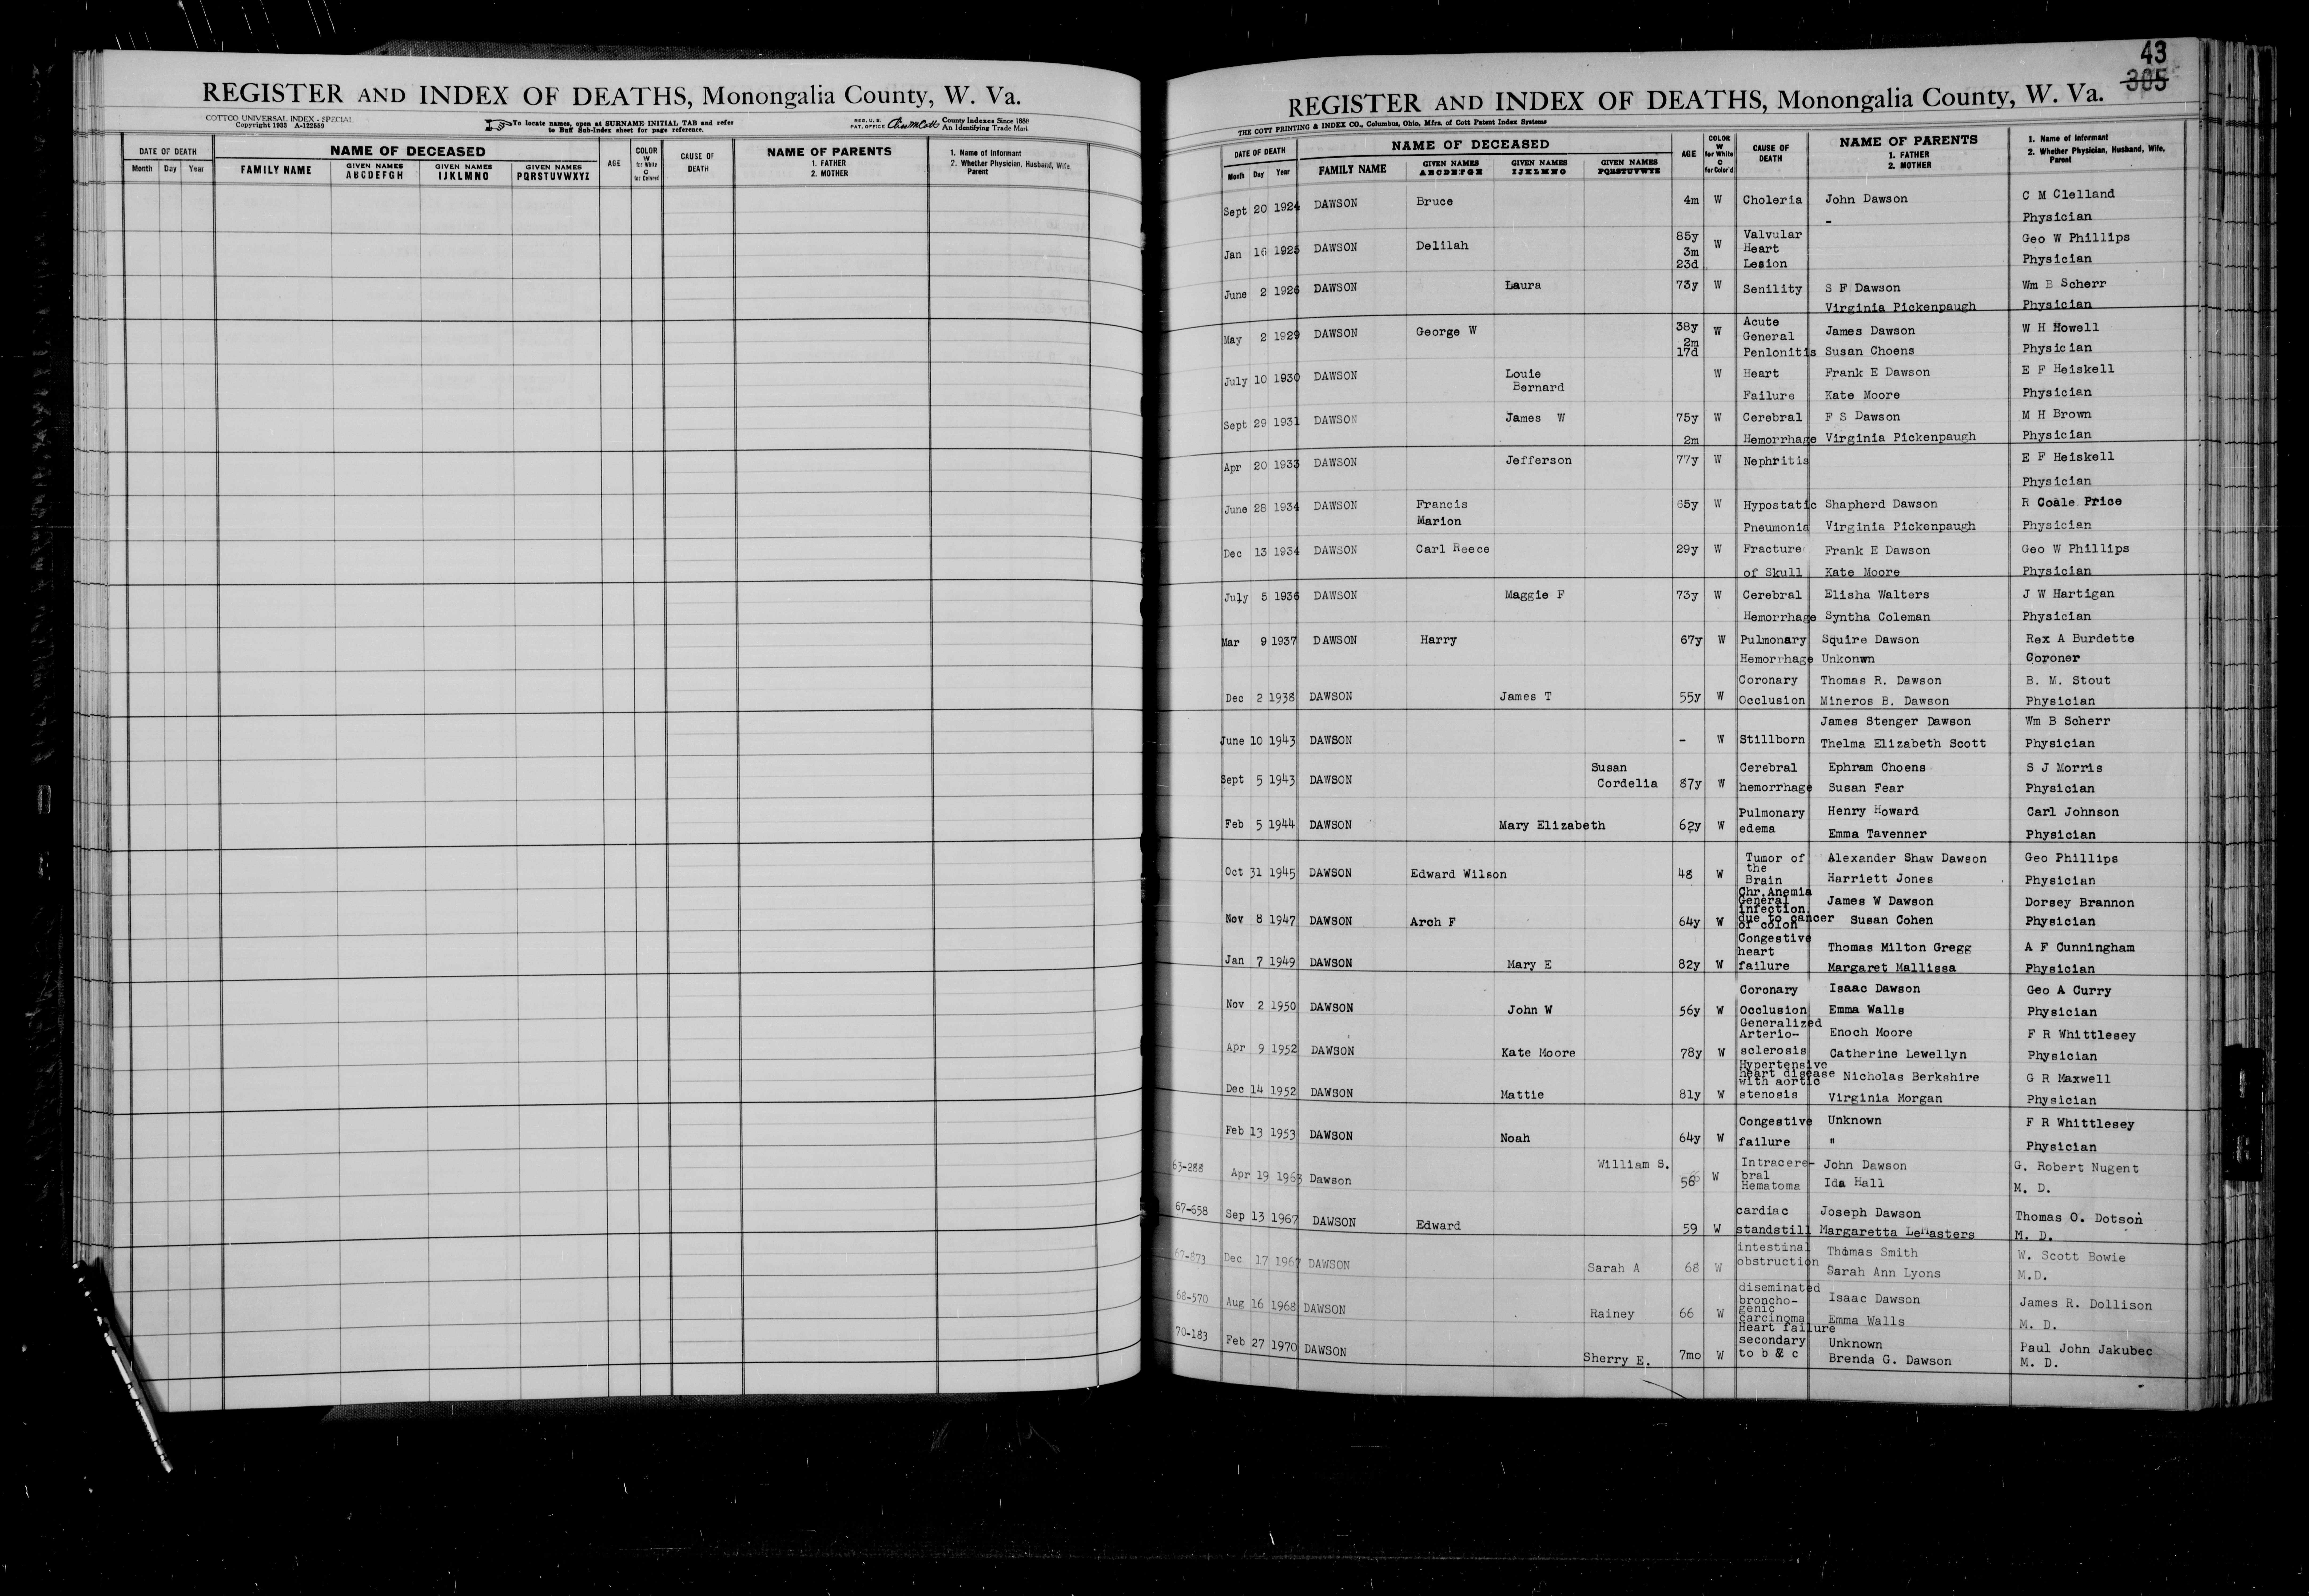 REGISTER AND INDEX OF DEATHS, Monongalia County, W. Va.
COTTCO UNIVERSAL INDEX - SPECIAL
Copyright 1933 A-122559
To locate names, open at SURNAME INITIAL TAB and refer
to Buff Sub-Index sheet for page reference.
REG. U. S.
PAT. OFFICE
County Indexes Since 1888
An Identifying Trade Mark
DATE OF DEATH
Month Day Year
NAME OF DECEASED
FAMILY NAME
GIVEN NAMES
ABCDEFGH
GIVEN NAMES
IJKLMNO
GIVEN NAMES
PQRSTUVWXYZ
AGE
COLOR
W
for White
C
for Colored
CAUSE OF
DEATH
NAME OF PARENTS
1. FATHER
2. MOTHER
1. Name of Informant
2. Whether Physician, Husband, Wife,
Parent
43
305
REGISTER AND INDEX OF DEATHS, Monongalia County, W. Va.
THE COTT PRINTING & INDEX CO., Columbus, Ohio, Mfrs. of Cott Patent Index Systems
DATE OF DEATH
Month Day Year
NAME OF DECEASED
FAMILY NAME
GIVEN NAMES
ABCDEFGH
GIVEN NAMES
IJKLMNO
GIVEN NAMES
PQRSTUVWXYZ
AGE
COLOR
W
for White
C
for Color'd
CAUSE OF
DEATH
NAME OF PARENTS
1. FATHER
2. MOTHER
1. Name of Informant
2. Whether Physician, Husband, Wife,
Parent
Sept 20 1924 DAWSON Bruce 4m W Choleria John Dawson C M Clelland
- Physician
Jan 16 1925 DAWSON Delilah 85y 3m 23d W Valvular Heart Lesion Geo W Phillips
Physician
June 2 1926 DAWSON Laura 73y W Senility S F Dawson Wm B Scherr
Virginia Pickenpaugh Physician
May 2 1929 DAWSON George W 38y 2m 17d W Acute General Penlonitis James Dawson W H Howell
Susan Choens Physician
July 10 1930 DAWSON Louie Bernard W Heart Frank E Dawson E F Heiskell
Failure Kate Moore Physician
Sept 29 1931 DAWSON James W 75y W Cerebral F S Dawson M H Brown
2m Hemorrhage Virginia Pickenpaugh Physician
Apr 20 1933 DAWSON Jefferson 77y W Nephritis E F Heiskell
Physician
June 28 1934 DAWSON Francis Marion 65y W Hypostatic Shapherd Dawson R Coale Price
Pneumonia Virginia Pickenpaugh Physician
Dec 13 1934 DAWSON Carl Reece 29y W Fracture Frank E Dawson Geo W Phillips
of Skull Kate Moore Physician
July 5 1936 DAWSON Maggie F 73y W Cerebral Elisha Walters J W Hartigan
Hemorrhage Syntha Coleman Physician
Mar 9 1937 DAWSON Harry 67y W Pulmonary Squire Dawson Rex A Burdette
Hemorrhage Unkonwn Coroner
Coronary Thomas R. Dawson B. M. Stout
Dec 2 1938 DAWSON James T 55y W Occlusion Mineros B. Dawson Physician
James Stenger Dawson Wm B Scherr
June 10 1943 DAWSON - W Stillborn Thelma Elizabeth Scott Physician
Susan Cerebral Ephram Choens S J Morris
Sept 5 1943 DAWSON Cordelia 87y W hemorrhage Susan Fear Physician
Pulmonary Henry Howard Carl Johnson
Feb 5 1944 DAWSON Mary Elizabeth 62y W edema Emma Tavenner Physician
Tumor of Alexander Shaw Dawson Geo Phillips
Oct 31 1945 DAWSON Edward Wilson 48 W the Brain Harriett Jones Physician
Chr.Anemia General infection James W Dawson Dorsey Brannon
Nov 8 1947 DAWSON Arch F 64y W due to cancer of colon Susan Cohen Physician
Congestive heart Thomas Milton Gregg A F Cunningham
Jan 7 1949 DAWSON Mary E 82y W failure Margaret Mallissa Physician
Coronary Isaac Dawson Geo A Curry
Nov 2 1950 DAWSON John W 56y W Occlusion Emma Walls Physician
Generalized Arterio- Enoch Moore F R Whittlesey
Apr 9 1952 DAWSON Kate Moore 78y W sclerosis Catherine Lewellyn Physician
Hypertensive heart disease with aortic Nicholas Berkshire G R Maxwell
Dec 14 1952 DAWSON Mattie 81y W stenosis Virginia Morgan Physician
Congestive Unknown F R Whittlesey
Feb 13 1953 DAWSON Noah 64y W failure " Physician
63-288 William S. Intracere- John Dawson G. Robert Nugent
Apr 19 1963 Dawson 56 W bral Hematoma Ida Hall M. D.
67-658 cardiac Joseph Dawson Thomas O. Dotson
Sep 13 1967 DAWSON Edward 59 W standstill Margaretta LeMasters M. D.
67-873 intestinal Thomas Smith W. Scott Bowie
Dec 17 1967 DAWSON Sarah A 68 W obstruction Sarah Ann Lyons M.D.
68-570 diseminated broncho- Isaac Dawson James R. Dollison
Aug 16 1968 DAWSON Rainey 66 W genic carcinoma Emma Walls M. D.
70-183 Heart failure secondary Unknown Paul John Jakubec
Feb 27 1970 DAWSON Sherry E. 7mo W to b & c Brenda G. Dawson M. D.